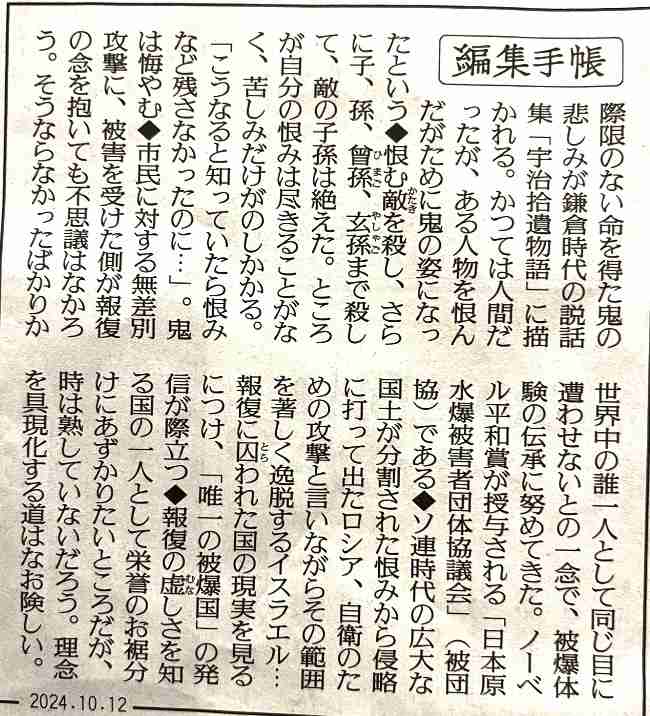 編集手帳
際限のない命を得た鬼の
悲しみが鎌倉時代の説話
集「宇治拾遺物語」に描
かれる。かつては人間だ
ったが、ある人物を恨ん
だがために鬼の姿になっ
たという◆恨む敵を殺し、さら
に子、孫、曾孫、玄孫まで殺し
て、敵の子孫は絶えた。ところ
が自分の恨みは尽きることがな
く、苦しみだけがのしかかる。
「こうなると知っていたら恨み
など残さなかったのに…」。鬼
は悔やむ◆市民に対する無差別
攻撃に、被害を受けた側が報復
の念を抱いても不思議はなかろ
う。そうならなかったばかりか
世界中の誰一人として同じ目に
遭わせないとの一念で、被爆体
験の伝承に努めてきた。ノーベ
ル平和賞が授与される「日本原
水爆被害者団体協議会」（被団
協）である◆ソ連時代の広大な
国土が分割された恨みから侵略
に打って出たロシア、自衛のた
めの攻撃と言いながらその範囲
を著しく逸脱するイスラエル…
報復に囚われた国の現実を見る
につけ、「唯一の被爆国」の発
信が際立つ◆報復の虚しさを知
る国の一人として栄誉のお裾分
けにあずかりたいところだが、
時は熟していないだろう。理念
を具現化する道はなお険しい。
2024.10.12